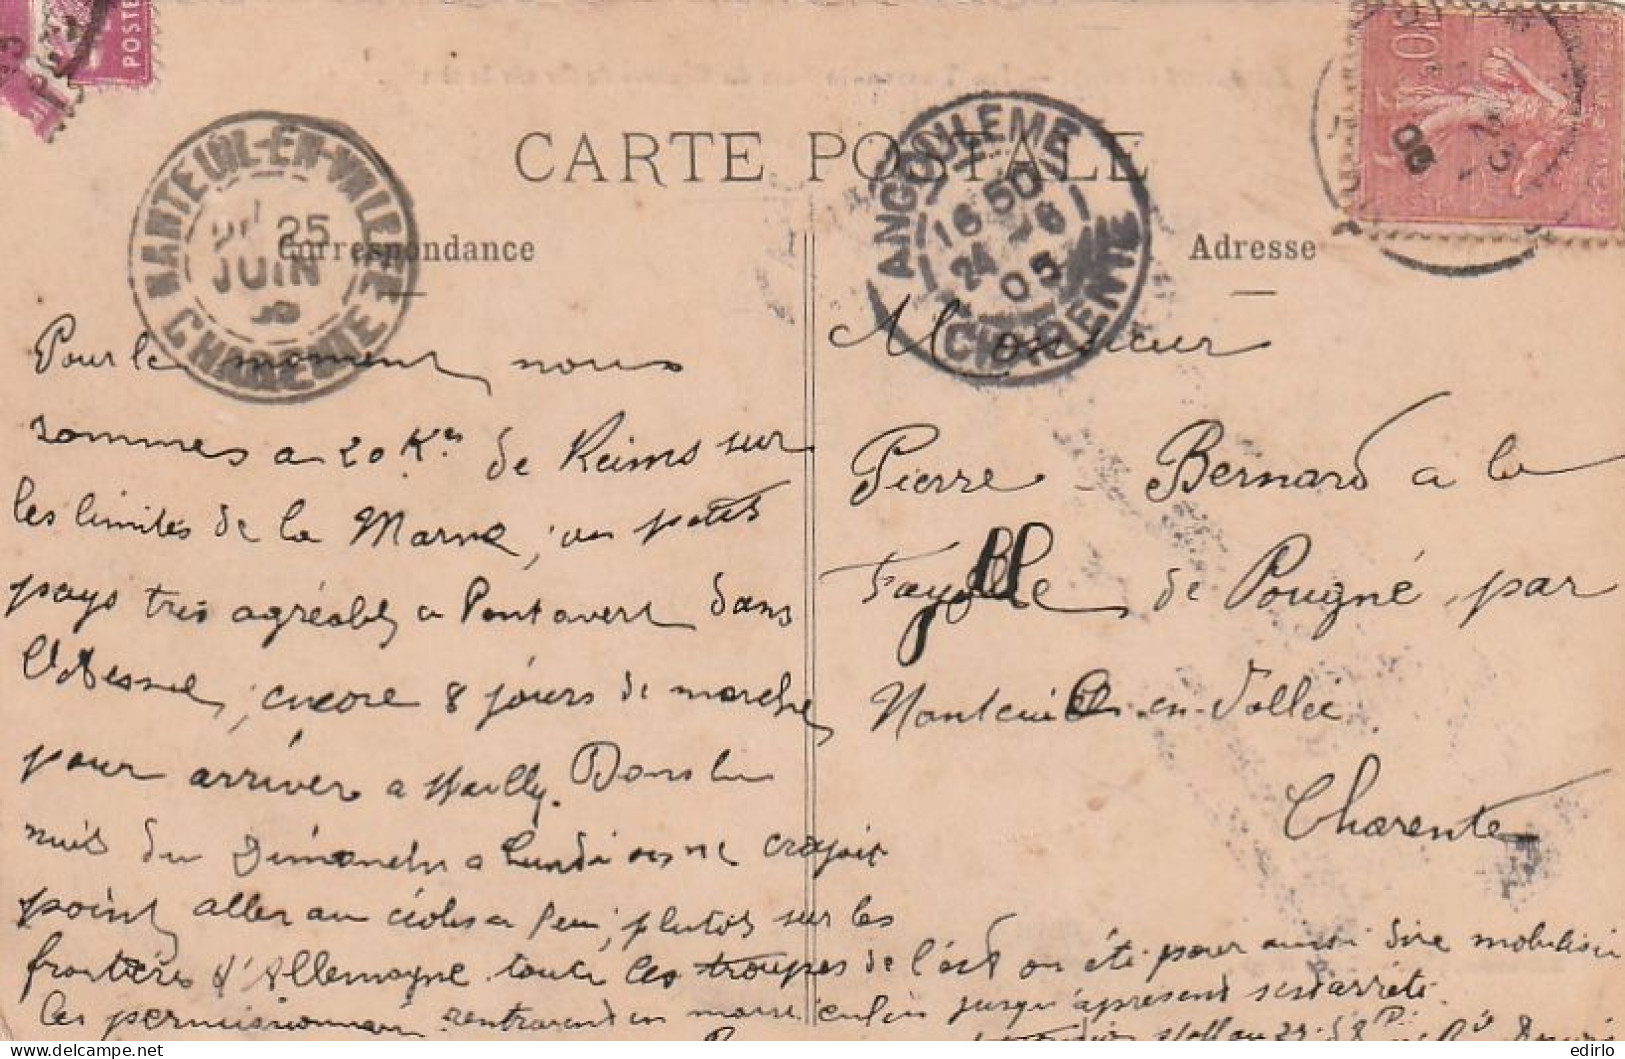 POSTE
CARTE POSTALE
NANTEUIL-EN-VALLÉE
25
JUIN
CHARENTE
ANGOULEME
16 50
24 6
05
CHARENTE
10
Correspondance
Adresse
Pour le moment nous
sommes a 20 Kes de Reims sur
les limites de la Marne, un petit
pays très agréable a Pontavert dans
l'Aisne, encore 8 jours de marche
pour arriver a Mailly. Dans la
nuit du Dimanche a Lundi on ne croyait
point aller au école a feu, plutôt sur les
frontières d'Allemagne toutes les troupes de l'est on été pour ainsi dire mobilisé
les permissionnaires rentraient en masse enfin jusqu'a présent s'est arrêté.
Monsieur
Pierre Bernard a la
Fayolle de Pougné par
Nanteuil-en-Vallée
Charente
edirlo